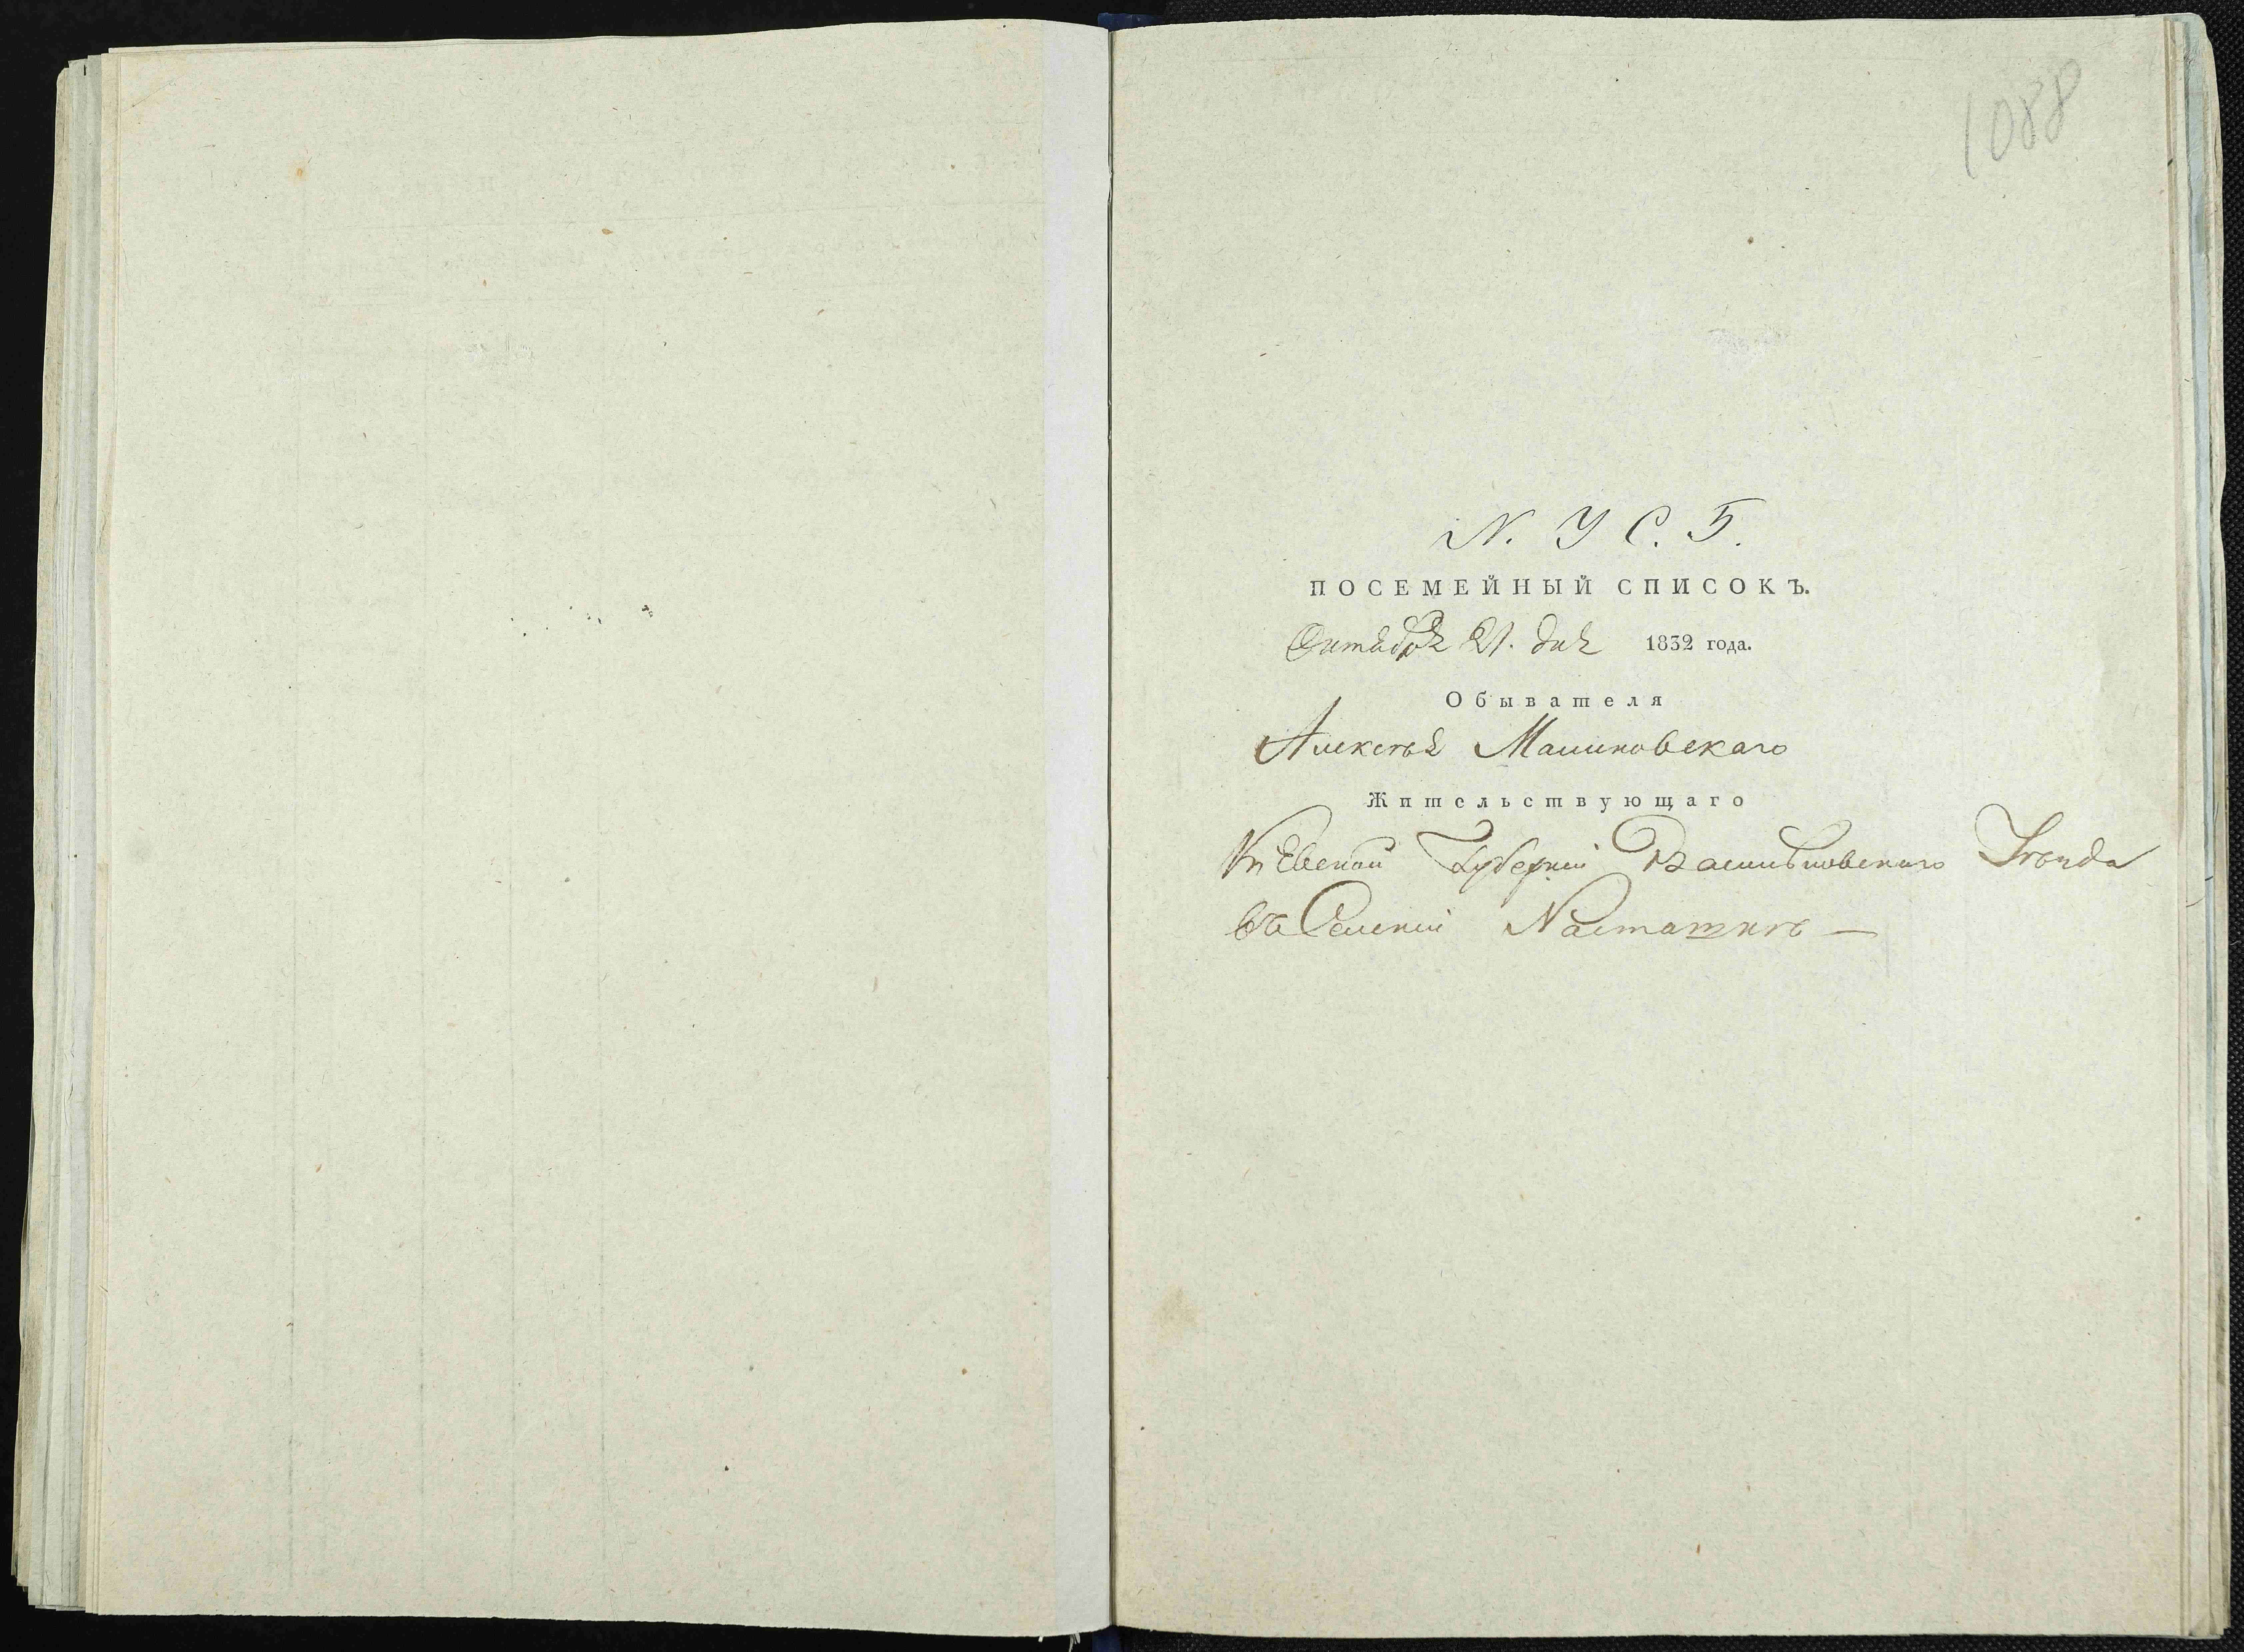 1088
N. У С. Б.
ПОСЕМЕЙНЫЙ СПИСОКЪ.
Октября 21. дня 1832 года.
Обывателя
Алексѣя Малиновскаго
Жительствующаго
Киевской Губерніи Васильковскаго Уѣзда
въ Селеніи Насташкѣ —